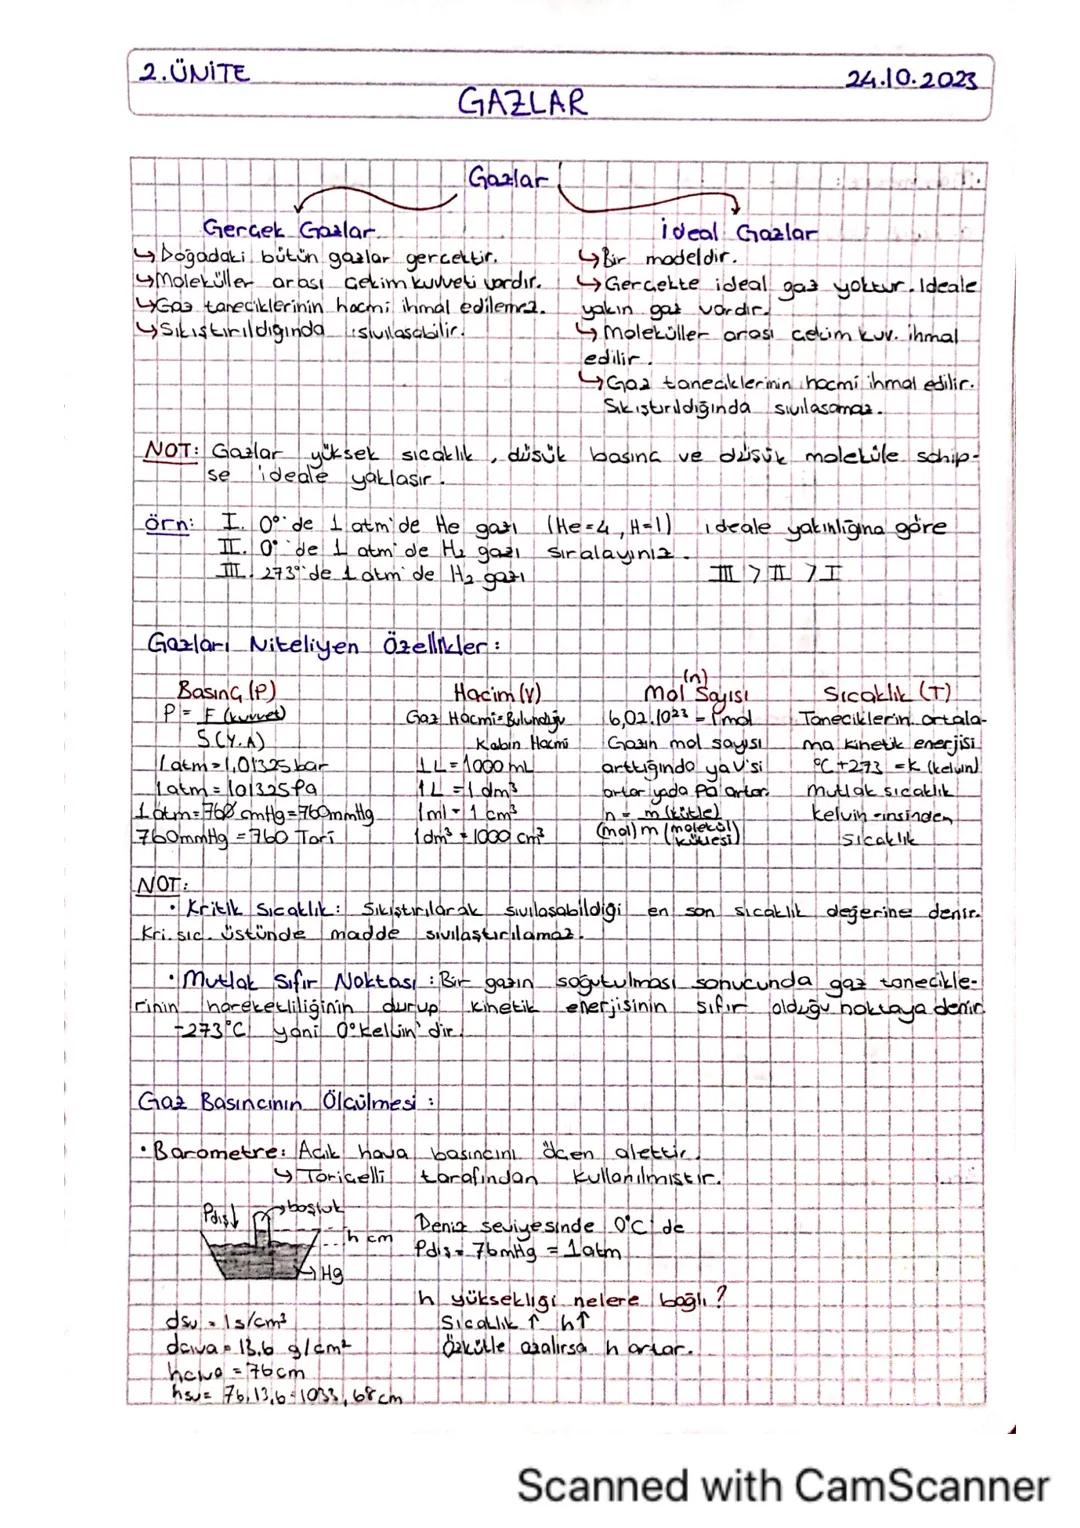 2.ÜNİTE
24.10.2023
GAZLAR
Gazlar
Gerçek Gazlar
↳Doğadaki bütün gazlar gerçektir.
↳Moleküller arası çekim kuvveti vardır.
↳Gaz taneciklerinin hacmi ihmal edilemez.
↳Sıkıştırıldığında sıvılaşabilir.
İdeal Gazlar
↳Bir modeldir.
↳Gerçekte ideal gaz yoktur. İdeale
yakın gaz vardır.
↳Moleküller arası çekim kuv. ihmal
edilir.
↳Gaz taneciklerinin hacmi ihmal edilir.
Sıkıştırıldığında sıvılaşamaz.
NOT: Gazlar yüksek sıcaklık, düşük basınç ve düşük moleküle sahip-
se ideale yaklaşır.
Örn: I. 0°'de 1 atm'de He gazı (He=4, H=1) ideale yakınlığına göre
II. 0°'de 1 atm'de H₂ gazı sıralayınız.
III. 273°'de 1 atm'de H₂ gazı III > II > I
Gazları Niteliyen Özellikler:
Basınç (P)
P = F (kuvvet)
S(Y.A)
1 atm = 1,01325 bar
1 atm = 101325 Pa
1 atm = 760 cmHg = 760mmHg
760mmHg = 760 Tori
Hacim (V)
Gaz Hacmi = Bulunduğu
Kabın Hacmi
1L = 1000 mL
1L = 1 dm³
1 ml = 1 cm³
1dm³ = 1000 cm³
(n)
Mol Sayısı
6,02.10²³ = 1 mol
Gazın mol sayısı
arttığında ya V'si
artar yada Pa artar.
n = m (kütle)
(mol) m (molekül
kütlesi)
Sıcaklık (T)
Taneciklerin ortala-
ma kinetik enerjisi
°C + 273 = K (kelvin)
mutlak sıcaklık
kelvin -insinden
sıcaklık
NOT:
• Kritik Sıcaklık: Sıkıştırılarak sıvılaşabildiği en son sıcaklık değerine denir.
Kri. sıc. üstünde madde sıvılaştırılamaz.
• Mutlak Sıfır Noktası: Bir gazın soğutulması sonucunda gaz tanecikle-
rinin hareketliliğinin durup kinetik enerjisinin sıfır olduğu noktaya denir.
-273°C yani 0°Kelvin'dir.
Gaz Basıncının Ölçülmesi:
• Barometre: Açık hava basıncını ölçen alettir.
↳Toriçelli tarafından kullanılmıştır.
Pdış↓
boşluk
h cm
Hg
Deniz seviyesinde 0°C'de
Pdış = 76mHg = 1atm
h yüksekliği nelere bağlı?
Sıcaklık ↑ h↑
Özkütle azalırsa h artar.
dsu = 1s/cm³
dcıva = 13,6 g/cm²
hcıva = 76cm
hsu = 76.13,6 = 1033,68cm
Scanned with CamScanner